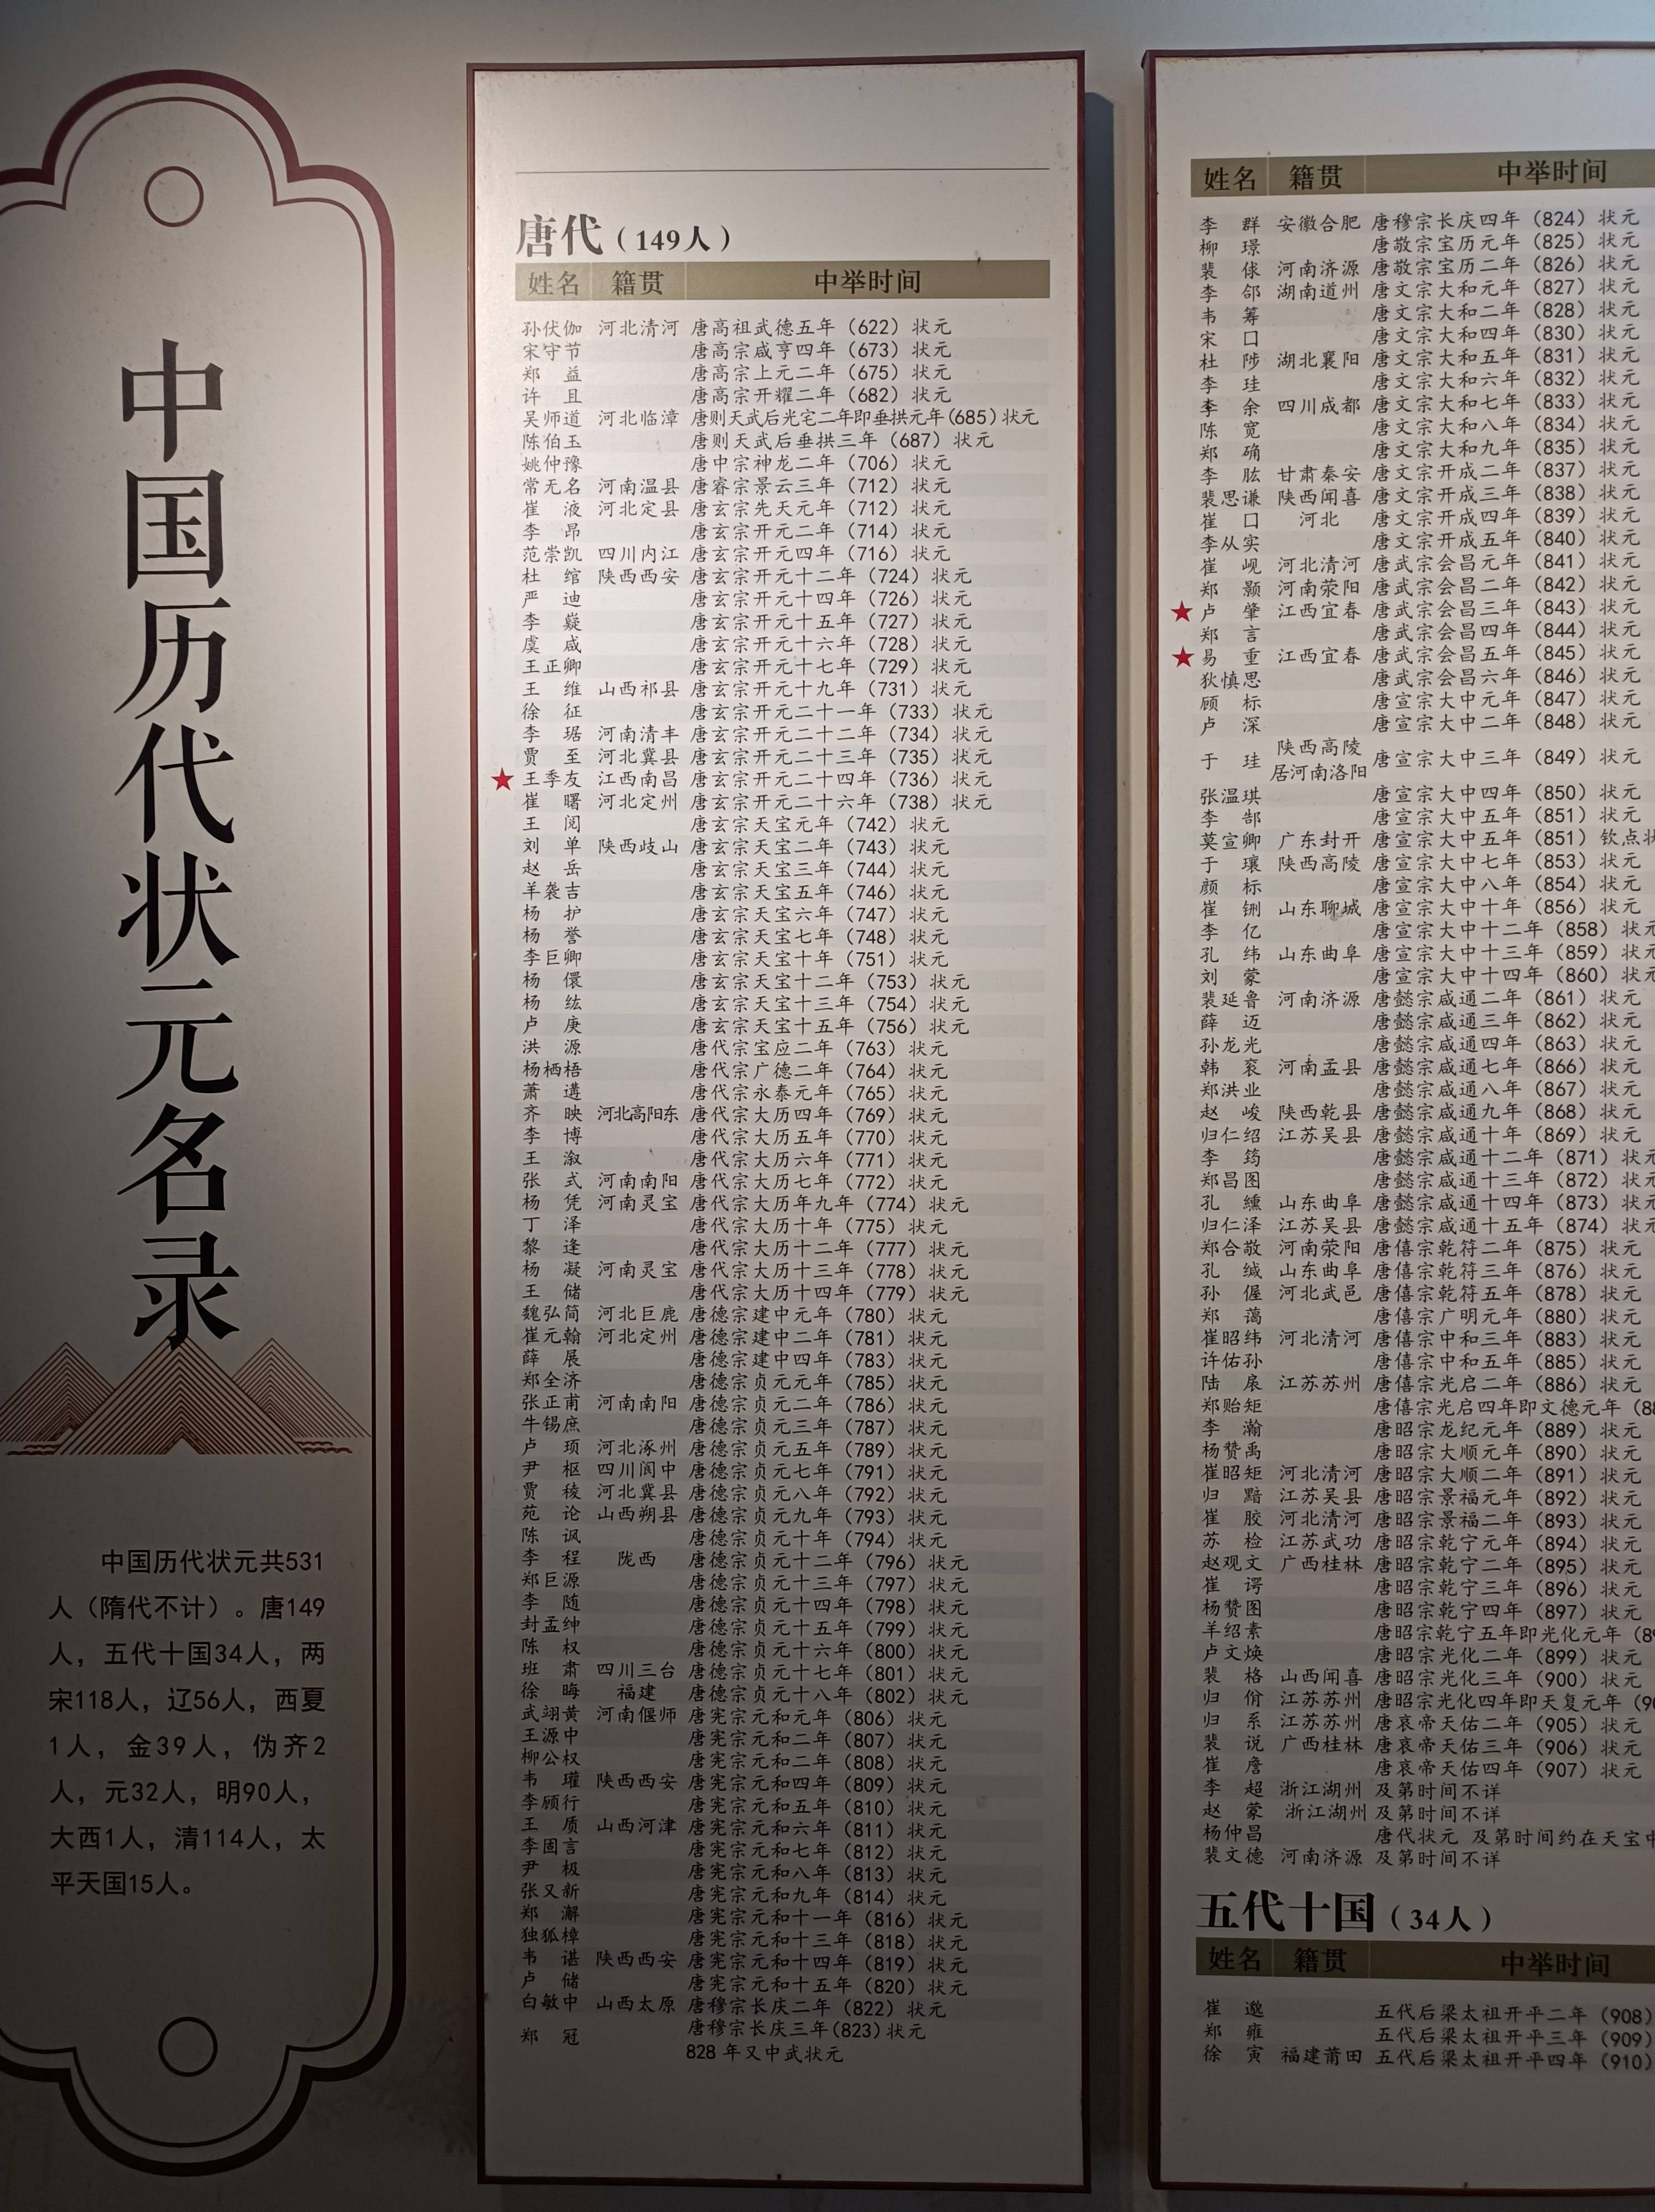 中国历代状元名录
中国历代状元共531
人（隋代不计）。唐149
人，五代十国34人，两
宋118人，辽56人，西夏
1人，金39人，伪齐2
人，元32人，明90人，
大西1人，清114人，太
平天国15人。
唐代（149人）
姓名 籍贯 中举时间
孙伏伽 河北清河 唐高祖武德五年（622）状元
宋守节 唐高宗咸亨四年（673）状元
郑益 唐高宗上元二年（675）状元
许且 唐高宗开耀二年（682）状元
吴师道 河北临漳 唐则天武后光宅二年即垂拱元年(685)状元
陈伯玉 唐则天武后垂拱三年（687）状元
姚仲豫 唐中宗神龙二年（706）状元
常无名 河南温县 唐睿宗景云三年（712）状元
崔液 河北定县 唐玄宗先天元年（712）状元
李昂 唐玄宗开元二年（714）状元
范崇凯 四川内江 唐玄宗开元四年（716）状元
杜绾 陕西西安 唐玄宗开元十二年（724）状元
严迪 唐玄宗开元十四年（726）状元
李嶷 唐玄宗开元十五年（727）状元
虞咸 唐玄宗开元十六年（728）状元
王正卿 唐玄宗开元十七年（729）状元
王维 山西祁县 唐玄宗开元十九年（731）状元
徐征 唐玄宗开元二十一年（733）状元
李琚 河南清丰 唐玄宗开元二十二年（734）状元
贾至 河北冀县 唐玄宗开元二十三年（735）状元
★王季友 江西南昌 唐玄宗开元二十四年（736）状元
崔曙 河北定州 唐玄宗开元二十六年（738）状元
王阅 唐玄宗天宝元年（742）状元
刘单 陕西歧山 唐玄宗天宝二年（743）状元
赵岳 唐玄宗天宝三年（744）状元
羊袭吉 唐玄宗天宝五年（746）状元
杨护 唐玄宗天宝六年（747）状元
杨誉 唐玄宗天宝七年（748）状元
李巨卿 唐玄宗天宝十年（751）状元
杨儇 唐玄宗天宝十二年（753）状元
杨纮 唐玄宗天宝十三年（754）状元
卢庚 唐玄宗天宝十五年（756）状元
洪源 唐代宗宝应二年（763）状元
杨栖梧 唐代宗广德二年（764）状元
萧遘 唐代宗永泰元年（765）状元
齐映 河北高阳东 唐代宗大历四年（769）状元
李博 唐代宗大历五年（770）状元
王溆 唐代宗大历六年（771）状元
张式 河南南阳 唐代宗大历七年（772）状元
杨凭 河南灵宝 唐代宗大历年九年（774）状元
丁泽 唐代宗大历十年（775）状元
黎逢 唐代宗大历十二年（777）状元
杨凝 河南灵宝 唐代宗大历十三年（778）状元
王储 唐代宗大历十四年（779）状元
魏弘简 河北巨鹿 唐德宗建中元年（780）状元
崔元翰 河北定州 唐德宗建中二年（781）状元
薛展 唐德宗建中四年（783）状元
郑全济 唐德宗贞元元年（785）状元
张正甫 河南南阳 唐德宗贞元二年（786）状元
牛锡庶 唐德宗贞元三年（787）状元
卢顼 河北涿州 唐德宗贞元五年（789）状元
尹枢 四川阆中 唐德宗贞元七年（791）状元
贾稜 河北冀县 唐德宗贞元八年（792）状元
苑论 山西朔县 唐德宗贞元九年（793）状元
陈讽 唐德宗贞元十年（794）状元
李程 陇西 唐德宗贞元十二年（796）状元
郑巨源 唐德宗贞元十三年（797）状元
李随 唐德宗贞元十四年（798）状元
封孟绅 唐德宗贞元十五年（799）状元
陈权 唐德宗贞元十六年（800）状元
班肃 四川三台 唐德宗贞元十七年（801）状元
徐晦 福建 唐德宗贞元十八年（802）状元
武翊黄 河南偃师 唐宪宗元和元年（806）状元
王源中 唐宪宗元和二年（807）状元
柳公权 唐宪宗元和二年（808）状元
韦瓘 陕西西安 唐宪宗元和四年（809）状元
李顾行 唐宪宗元和五年（810）状元
王质 山西河津 唐宪宗元和六年（811）状元
李固言 唐宪宗元和七年（812）状元
尹极 唐宪宗元和八年（813）状元
张又新 唐宪宗元和九年（814）状元
郑澥 唐宪宗元和十一年（816）状元
独狐樟 唐宪宗元和十三年（818）状元
韦谌 陕西西安 唐宪宗元和十四年（819）状元
卢储 唐宪宗元和十五年（820）状元
白敏中 山西太原 唐穆宗长庆二年（822）状元
郑冠 唐穆宗长庆三年(823)状元
828年又中武状元
姓名 籍贯 中举时间
李群 安徽合肥 唐穆宗长庆四年（824）状元
柳璟 唐敬宗宝历元年（825）状元
裴俅 河南济源 唐敬宗宝历二年（826）状元
李郃 湖南道州 唐文宗大和元年（827）状元
韦筹 唐文宗大和二年（828）状元
宋口 唐文宗大和四年（830）状元
杜陟 湖北襄阳 唐文宗大和五年（831）状元
李珪 唐文宗大和六年（832）状元
李余 四川成都 唐文宗大和七年（833）状元
陈宽 唐文宗大和八年（834）状元
郑确 唐文宗大和九年（835）状元
李肱 甘肃秦安 唐文宗开成二年（837）状元
裴思谦 陕西闻喜 唐文宗开成三年（838）状元
崔口 河北 唐文宗开成四年（839）状元
李从实 唐文宗开成五年（840）状元
崔岘 河北清河 唐武宗会昌元年（841）状元
郑颢 河南荥阳 唐武宗会昌二年（842）状元
★卢肇 江西宜春 唐武宗会昌三年（843）状元
郑言 唐武宗会昌四年（844）状元
★易重 江西宜春 唐武宗会昌五年（845）状元
狄慎思 唐武宗会昌六年（846）状元
顾标 唐宣宗大中元年（847）状元
卢深 唐宣宗大中二年（848）状元
于珪 陕西高陵
居河南洛阳 唐宣宗大中三年（849）状元
张温琪 唐宣宗大中四年（850）状元
李郜 唐宣宗大中五年（851）状元
莫宣卿 广东封开 唐宣宗大中五年（851）钦点状
于瓌 陕西高陵 唐宣宗大中七年（853）状元
颜标 唐宣宗大中八年（854）状元
崔铏 山东聊城 唐宣宗大中十年（856）状元
李亿 唐宣宗大中十二年（858）状元
孔纬 山东曲阜 唐宣宗大中十三年（859）状元
刘蒙 唐宣宗大中十四年（860）状元
裴延鲁 河南济源 唐懿宗咸通二年（861）状元
薛迈 唐懿宗咸通三年（862）状元
孙龙光 唐懿宗咸通四年（863）状元
韩衮 河南孟县 唐懿宗咸通七年（866）状元
郑洪业 唐懿宗咸通八年（867）状元
赵峻 陕西乾县 唐懿宗咸通九年（868）状元
归仁绍 江苏吴县 唐懿宗咸通十年（869）状元
李筠 唐懿宗咸通十二年（871）状元
郑昌图 唐懿宗咸通十三年（872）状元
孔纁 山东曲阜 唐懿宗咸通十四年（873）状元
归仁泽 江苏吴县 唐懿宗咸通十五年（874）状元
郑合敬 河南荥阳 唐僖宗乾符二年（875）状元
孔缄 山东曲阜 唐僖宗乾符三年（876）状元
孙偓 河北武邑 唐僖宗乾符五年（878）状元
郑蔼 唐僖宗广明元年（880）状元
崔昭纬 河北清河 唐僖宗中和三年（883）状元
许佑孙 唐僖宗中和五年（885）状元
陆扆 江苏苏州 唐僖宗光启二年（886）状元
郑贻矩 唐僖宗光启四年即文德元年（88
李瀚 唐昭宗龙纪元年（889）状元
杨赞禹 唐昭宗大顺元年（890）状元
崔昭矩 河北清河 唐昭宗大顺二年（891）状元
归黯 江苏吴县 唐昭宗景福元年（892）状元
崔胶 河北清河 唐昭宗景福二年（893）状元
苏检 江苏武功 唐昭宗乾宁元年（894）状元
赵观文 广西桂林 唐昭宗乾宁二年（895）状元
崔谔 唐昭宗乾宁三年（896）状元
杨赞图 唐昭宗乾宁四年（897）状元
羊绍素 唐昭宗乾宁五年即光化元年（89
卢文焕 唐昭宗光化二年（899）状元
裴格 山西闻喜 唐昭宗光化三年（900）状元
归佾 江苏苏州 唐昭宗光化四年即天复元年（90
归系 江苏苏州 唐哀帝天佑二年（905）状元
裴说 广西桂林 唐哀帝天佑三年（906）状元
崔詹 唐哀帝天佑四年（907）状元
李超 浙江湖州 及第时间不详
赵蒙 浙江湖州 及第时间不详
杨仲昌 唐代状元 及第时间约在天宝中
裴文德 河南济源 及第时间不详
五代十国（34人）
姓名 籍贯 中举时间
崔邈 五代后梁太祖开平二年（908）
郑雍 五代后梁太祖开平三年（909）
徐寅 福建莆田 五代后梁太祖开平四年（910）